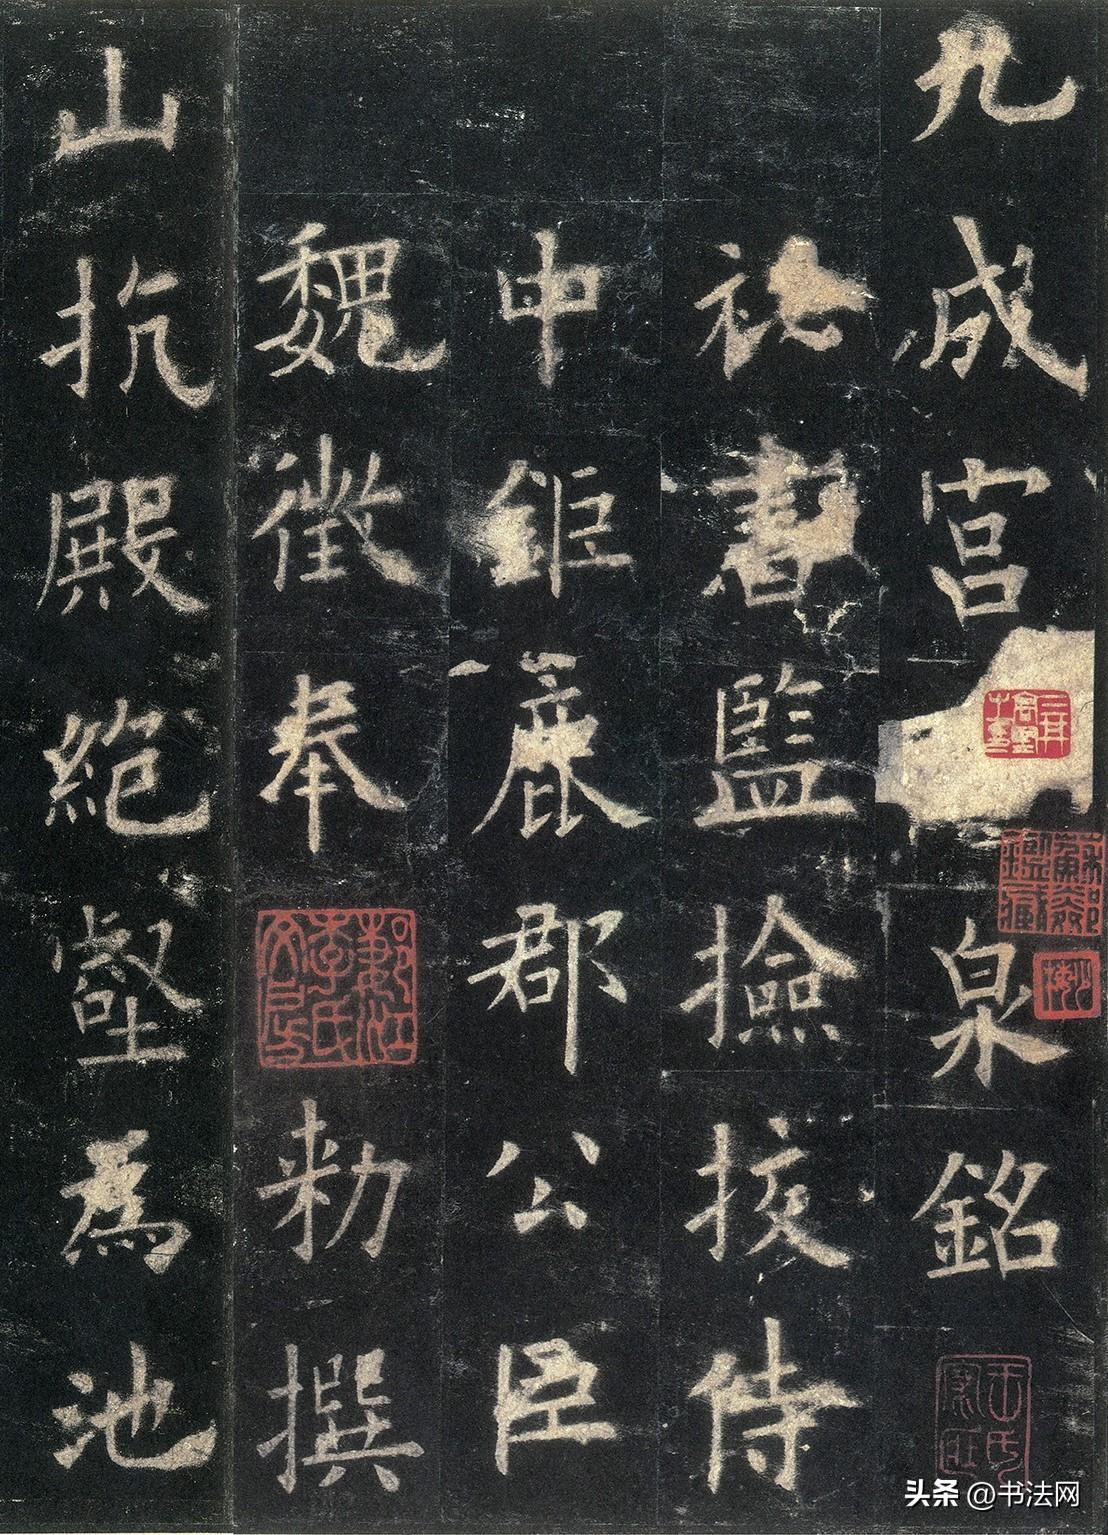 九成宫泉銘
祕書監撿挍侍
中鉅鹿郡公臣
魏徵奉勑撰
山抗殿絕壑為池
头条 @书法网